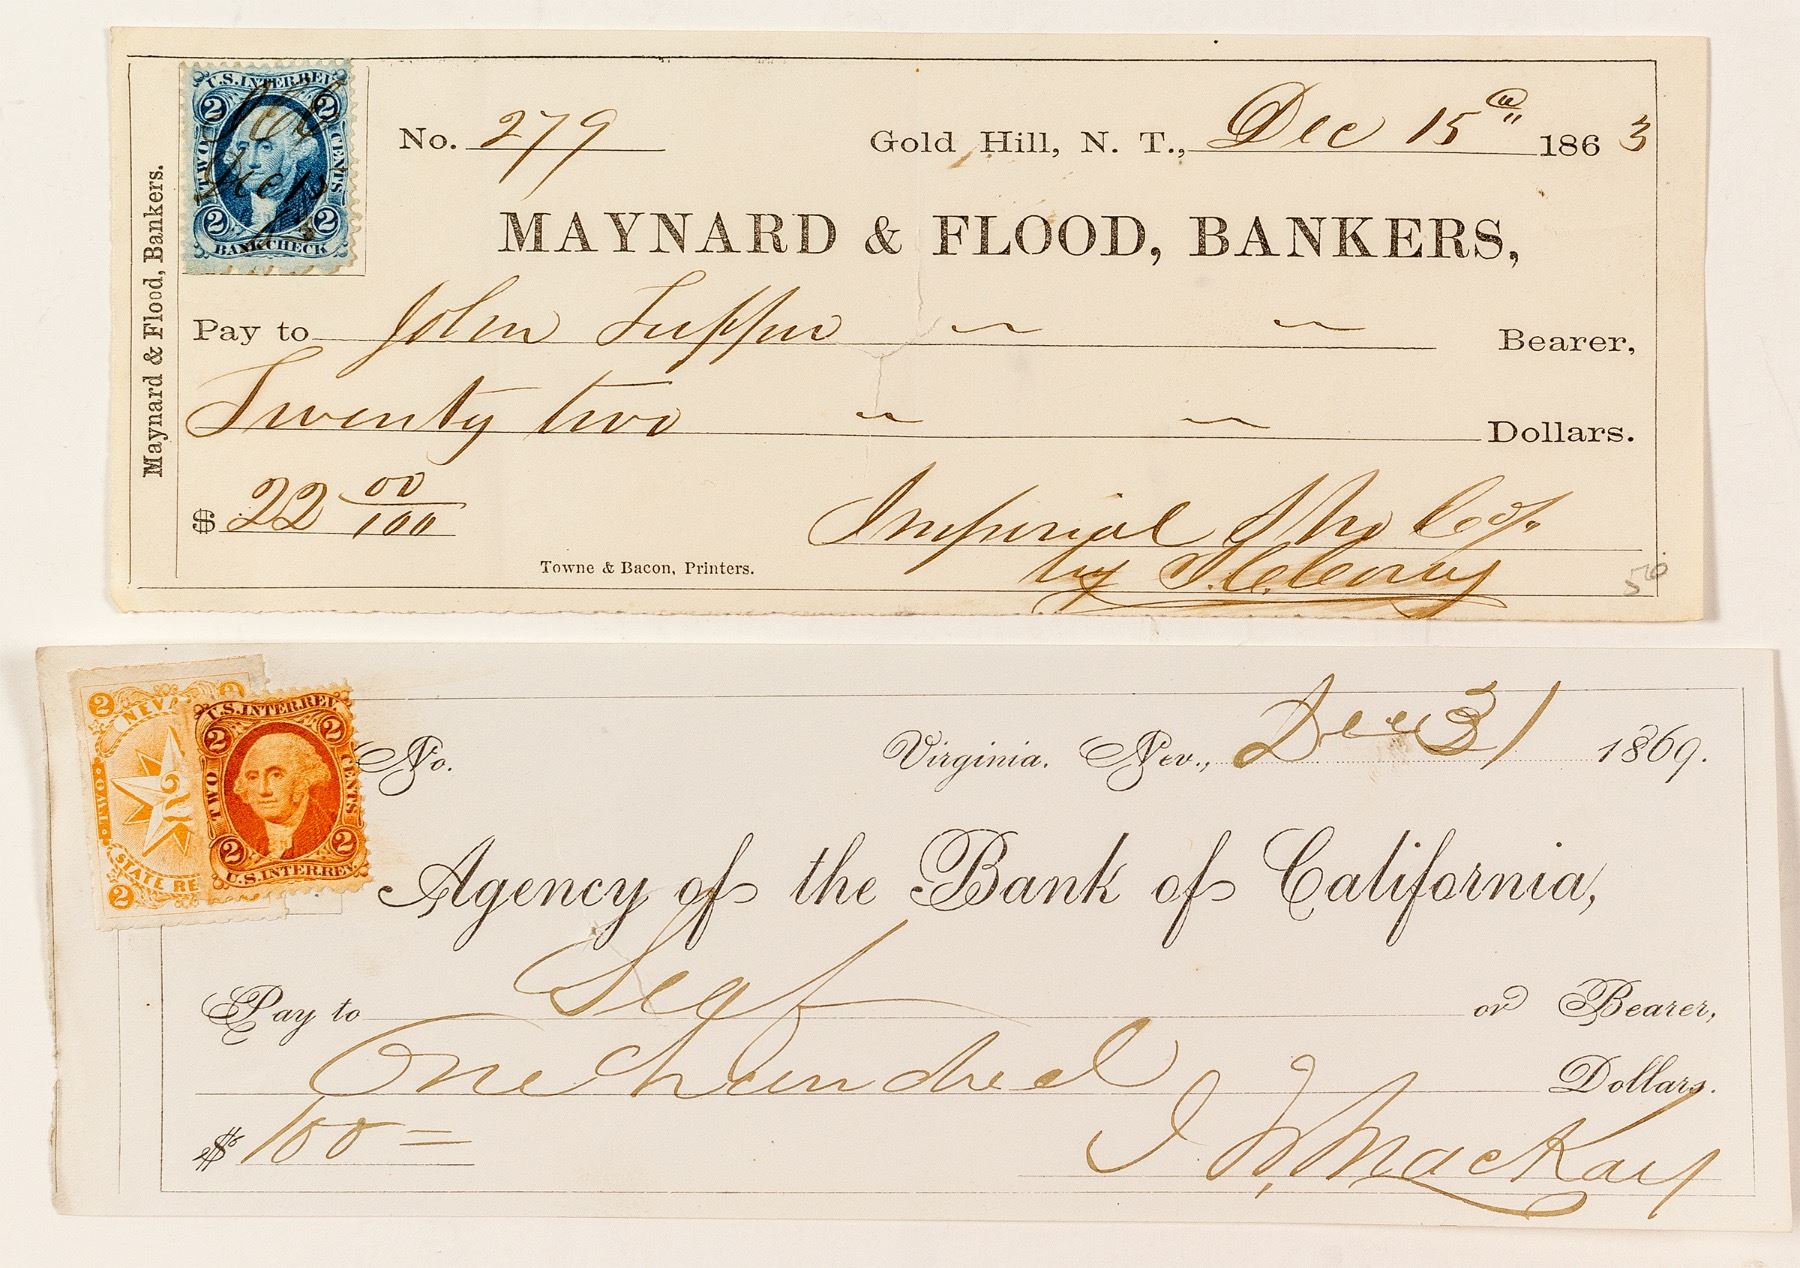 U.S. INTER. REV.
2 2
TWO CENTS
2 2
BANK CHECK
Maynard & Flood, Bankers.
No. 279 Gold Hill, N. T., Dec 15th 1863
MAYNARD & FLOOD, BANKERS,
Pay to John Tupper Bearer,
Twenty two Dollars.
$ 22 00/100
Imperial
by
Towne & Bacon, Printers.
50
2 2
NEVA
TWO
2
STATE RE
2
U.S. INTER. REV.
2 2
TWO CENTS
2 2
U.S. INTER. REV.
No. Virginia. Nev., Dec 31 1869.
Agency of the Bank of California,
Pay to Self or Bearer,
One hundred Dollars.
$ 100 =
J W Mackay